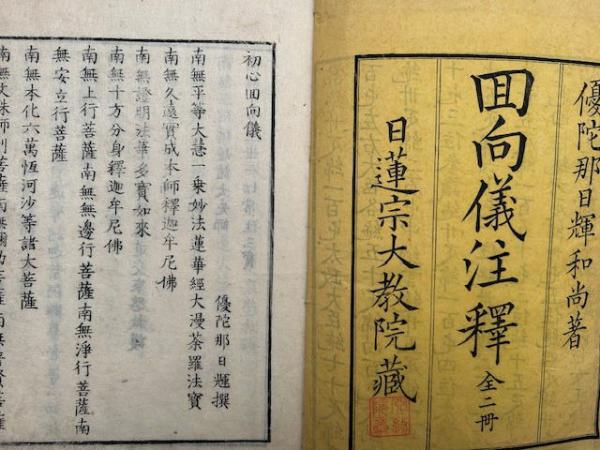 優陀那日輝和尚著
囬向儀注釋 全二冊
日蓮宗大教院藏
初心囬向儀
優陀那日輝撰
南無平等大慧一乗妙法蓮華經大漫荼羅法寶
南無久遠實成本師釋迦牟尼佛
南無證明法華多寶如來
南無十方分身釋迦牟尼佛
南無上行菩薩南無無邊行菩薩南無淨行菩薩南
無安立行菩薩
南無本化六萬恆河沙等諸大菩薩
南無文殊師利菩薩南無彌勒菩薩南無普賢菩薩